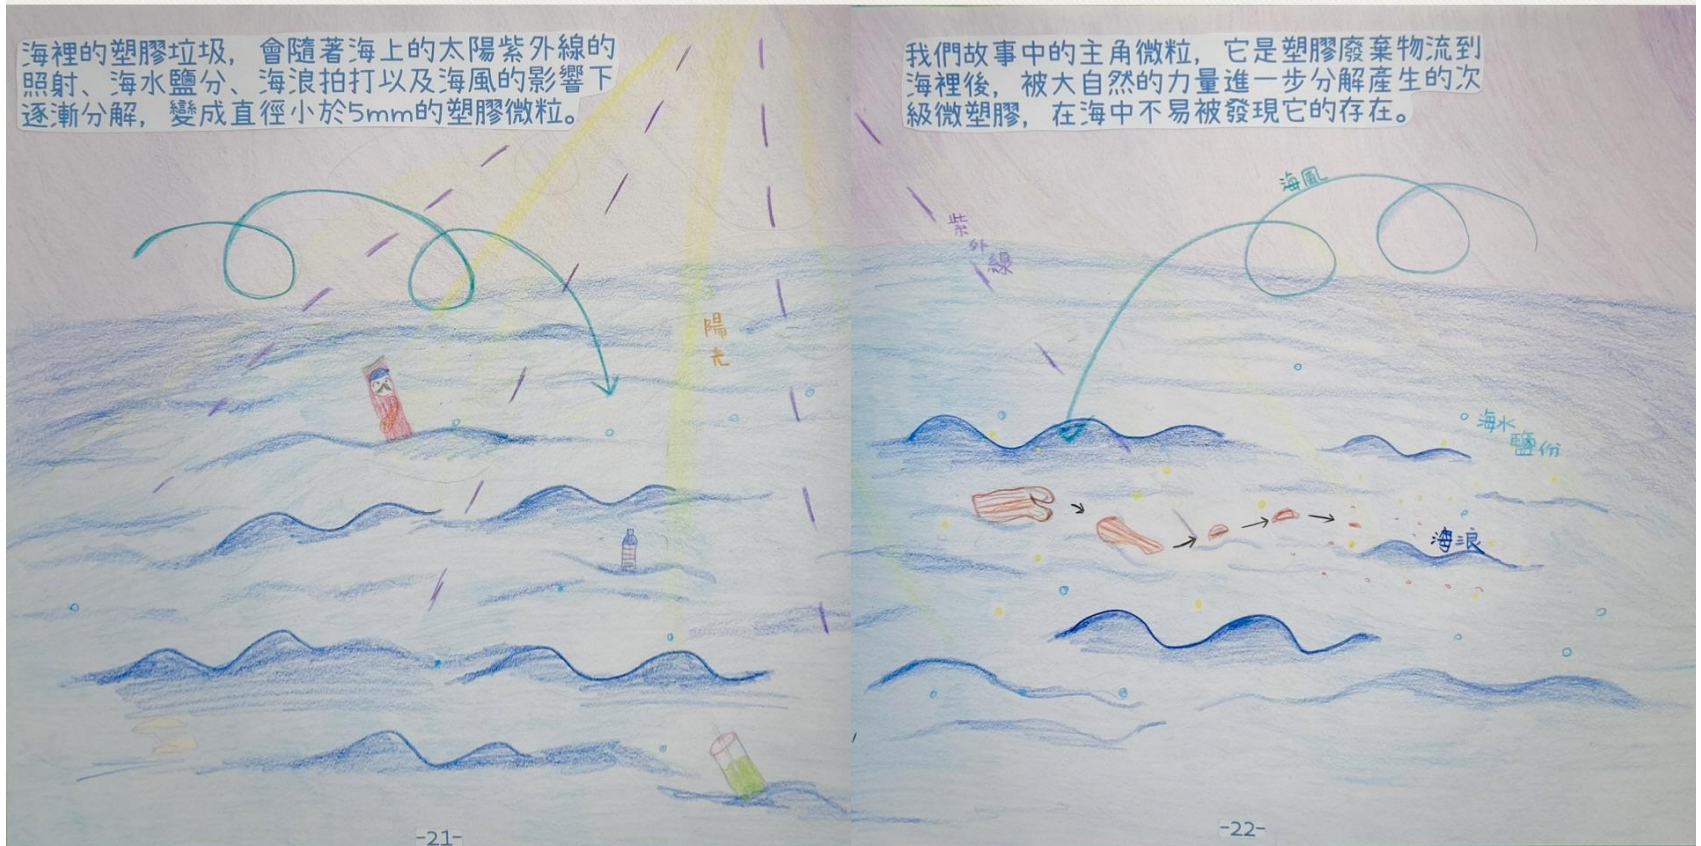 海裡的塑膠垃圾，會隨著海上的太陽紫外線的
照射、海水鹽分、海浪拍打以及海風的影響下
逐漸分解，變成直徑小於5mm的塑膠微粒。
陽
光
-21-
我們故事中的主角微粒，它是塑膠廢棄物流到
海裡後，被大自然的力量進一步分解產生的次
級微塑膠，在海中不易被發現它的存在。
海風
紫
外
線
海水
鹽份
海浪
-22-